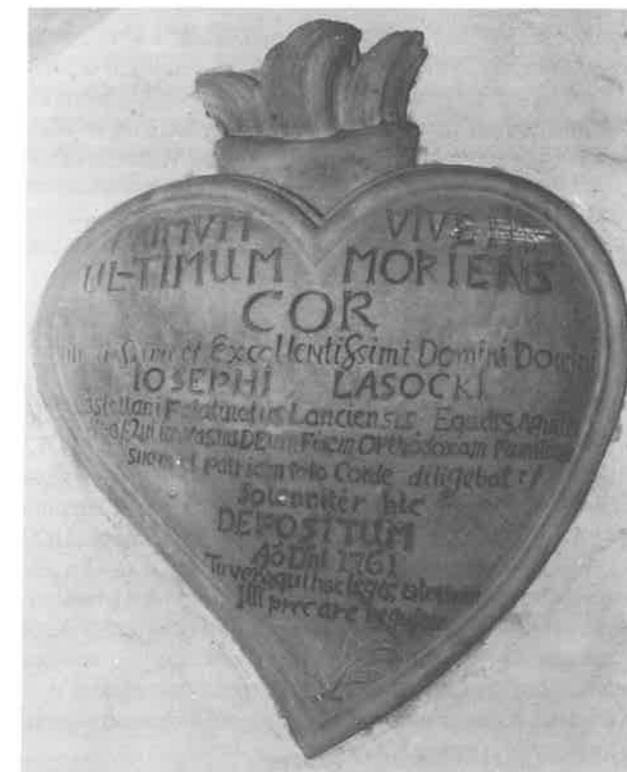 PRIMUM VIVENS
ULTIMUM MORIENS
COR
et ExcellentiSsimi Domini Domini
IOSEPHI LASOCKI
Castellani Lanciensis, Equitis Aquilæ
DEum Fidem Orthodoxam
suam et patriam toto Corde diligebat
Solenniter hic
DEPOSITUM
Aō Dni 1761
Tu vero qui hæc legis,
Illi precare